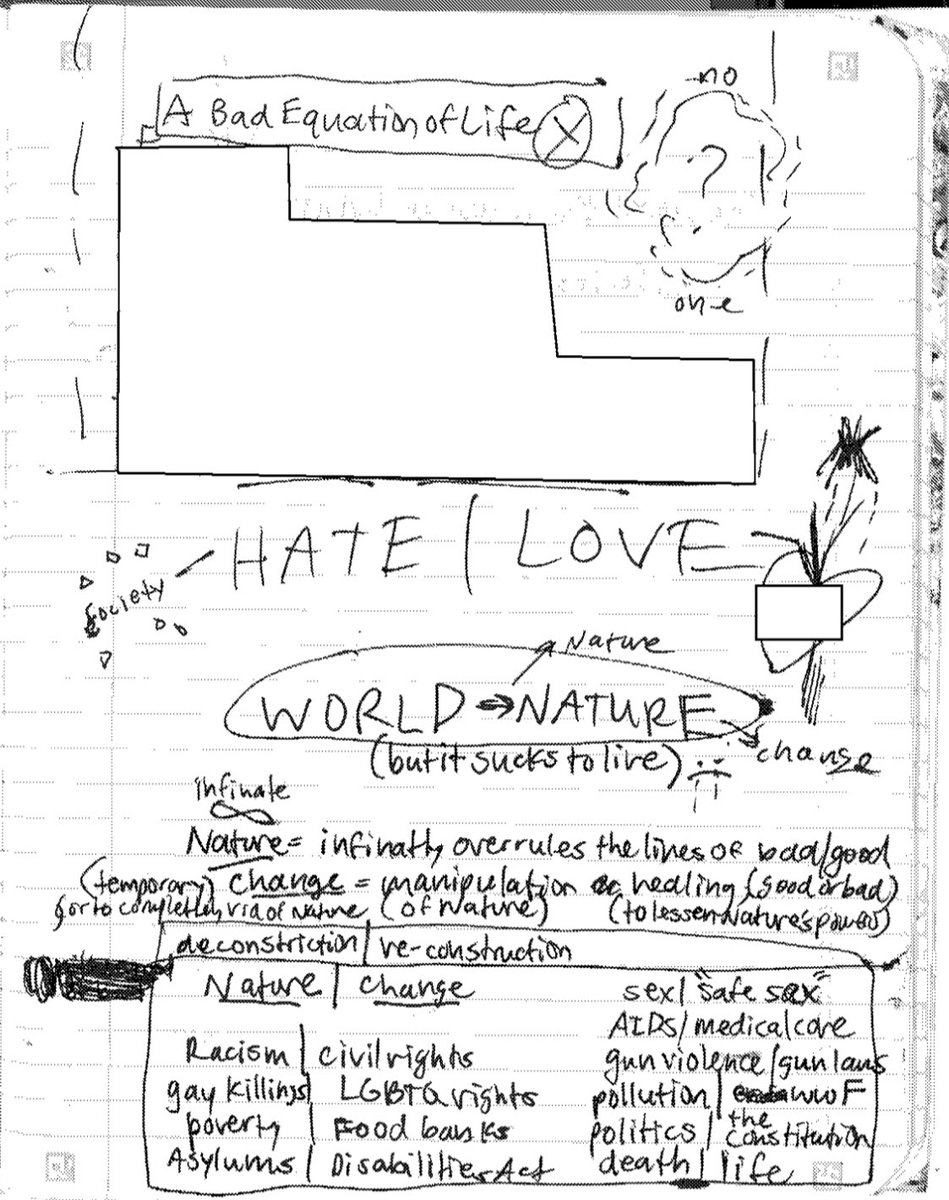 no
A Bad Equation of Life X
?
one
HATE | LOVE
society
Nature
WORLD → NATURE
(but it sucks to live)
change
infinate
∞
Nature = infinatly overrules the lines of bad/good
(temporary) change = manipulation or healing (good or bad)
(or to completley rid of nature (of Nature) (to lessen Nature's power)
deconstriction | re-construction
Nature | change
Racism | civil rights
gay killings | LGBTQ rights
poverty | Food banks
Asylums | Disabilities Act
sex | "safe sex"
AIDS / medical care
gun violence / gun laws
pollution | WWF
politics | the constitution
death | life